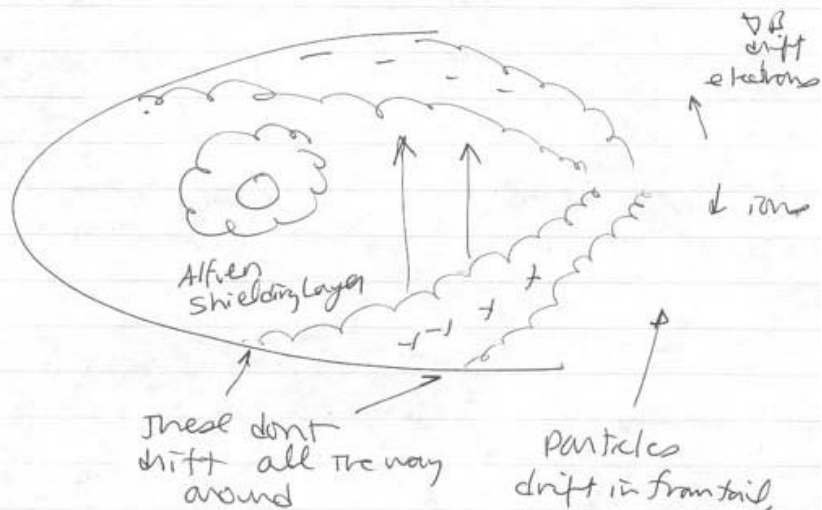 ∇B
drift
electrons
↓ ions
Alfven
Shielding Layer
These dont
drift all the way
around
Particles
drift in from tail